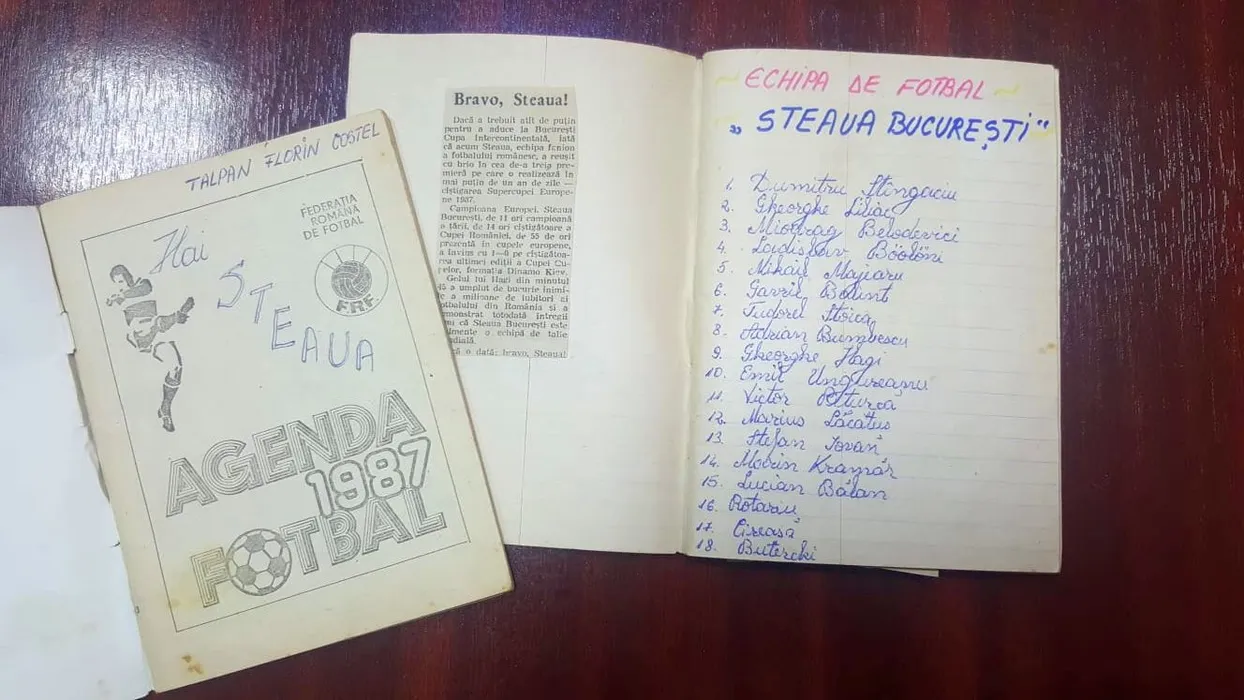 TALPAN FLORIN COSTEL
FEDERAȚIA
ROMÂNĂ
DE FOTBAL
F.R.F.
Hai
STEAUA
AGENDA
1987
FOTBAL
Bravo, Steaua!
Dacă a trebuit atît de puțin
pentru a aduce la București
Cupa Intercontinentală, iată
că acum Steaua, echipa fanion
a fotbalului românesc, a reușit
cu brio în cea de-a treia pre-
mieră pe care o realizează în
mai puțin de un an de zile —
cîștigarea Supercupei Europe-
ne 1987.
Campioana Europei, Steaua
București, de 11 ori campioană
a țării, de 14 ori cîștigătoare a
Cupei României, de 55 de ori
prezentă în cupele europene,
a învins cu 1—0 pe cîștigătoa-
rea ultimei ediții a Cupei Cu-
elor, formația Dinamo Kiev.
Golul lui Hagi din minutul
45 a umplut de bucurie inimi-
e a milioane de iubitori ai
otbalului din România și a
monstrat totodată întregii
că Steaua București este
o echipă de talie
dială.
o dată: bravo, Steaua!
ECHIPA DE FOTBAL
„STEAUA BUCUREȘTI"
1. Dumitru Stîngaciu
2. Gheorghe Liliac
3. Miodrag Belodevici
4. Ladislav Bölöni
5. Mihail Majiaru
6. Gavril Balint
7. Tudorel Stoica
8. Adrian Bumbescu
9. Gheorghe Hagi
10. Emil Ungureanu
11. Victor Pițurca
12. Marius Lăcătuș
13. Ștefan Iovan
14. Morin Kramár
15. Lucian Bălan
16. Rotariu
17. Cireașă
18. Buterchi